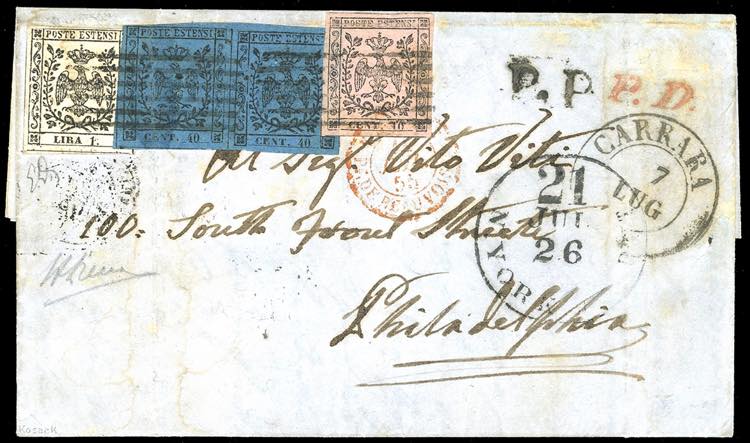 POSTE ESTENSI
LIRA 1.
POSTE ESTENSI
CENT. 40
POSTE ESTENSI
CENT. 40
POSTE ESTENSI
CENT. 10
P. P
P. D.
CARRARA
7
LUG
55
21
JUL
26
YORK
Al Sigr Vito Viti
100: South Front Street
Philadelphia
Kosack